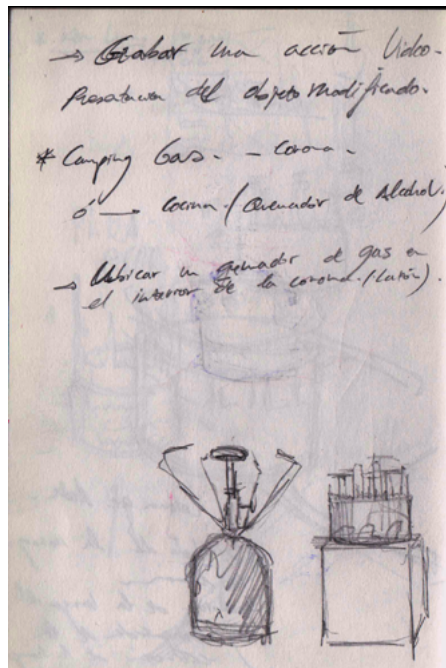 → Grabar una acción Video.
Presentación del objeto modificado.
* Camping Gas. - Corona.
ó → cocina. (Quemador de Alcohol.)
→ Ubicar un quemador de gas en
el interior de la corona. (Latón).